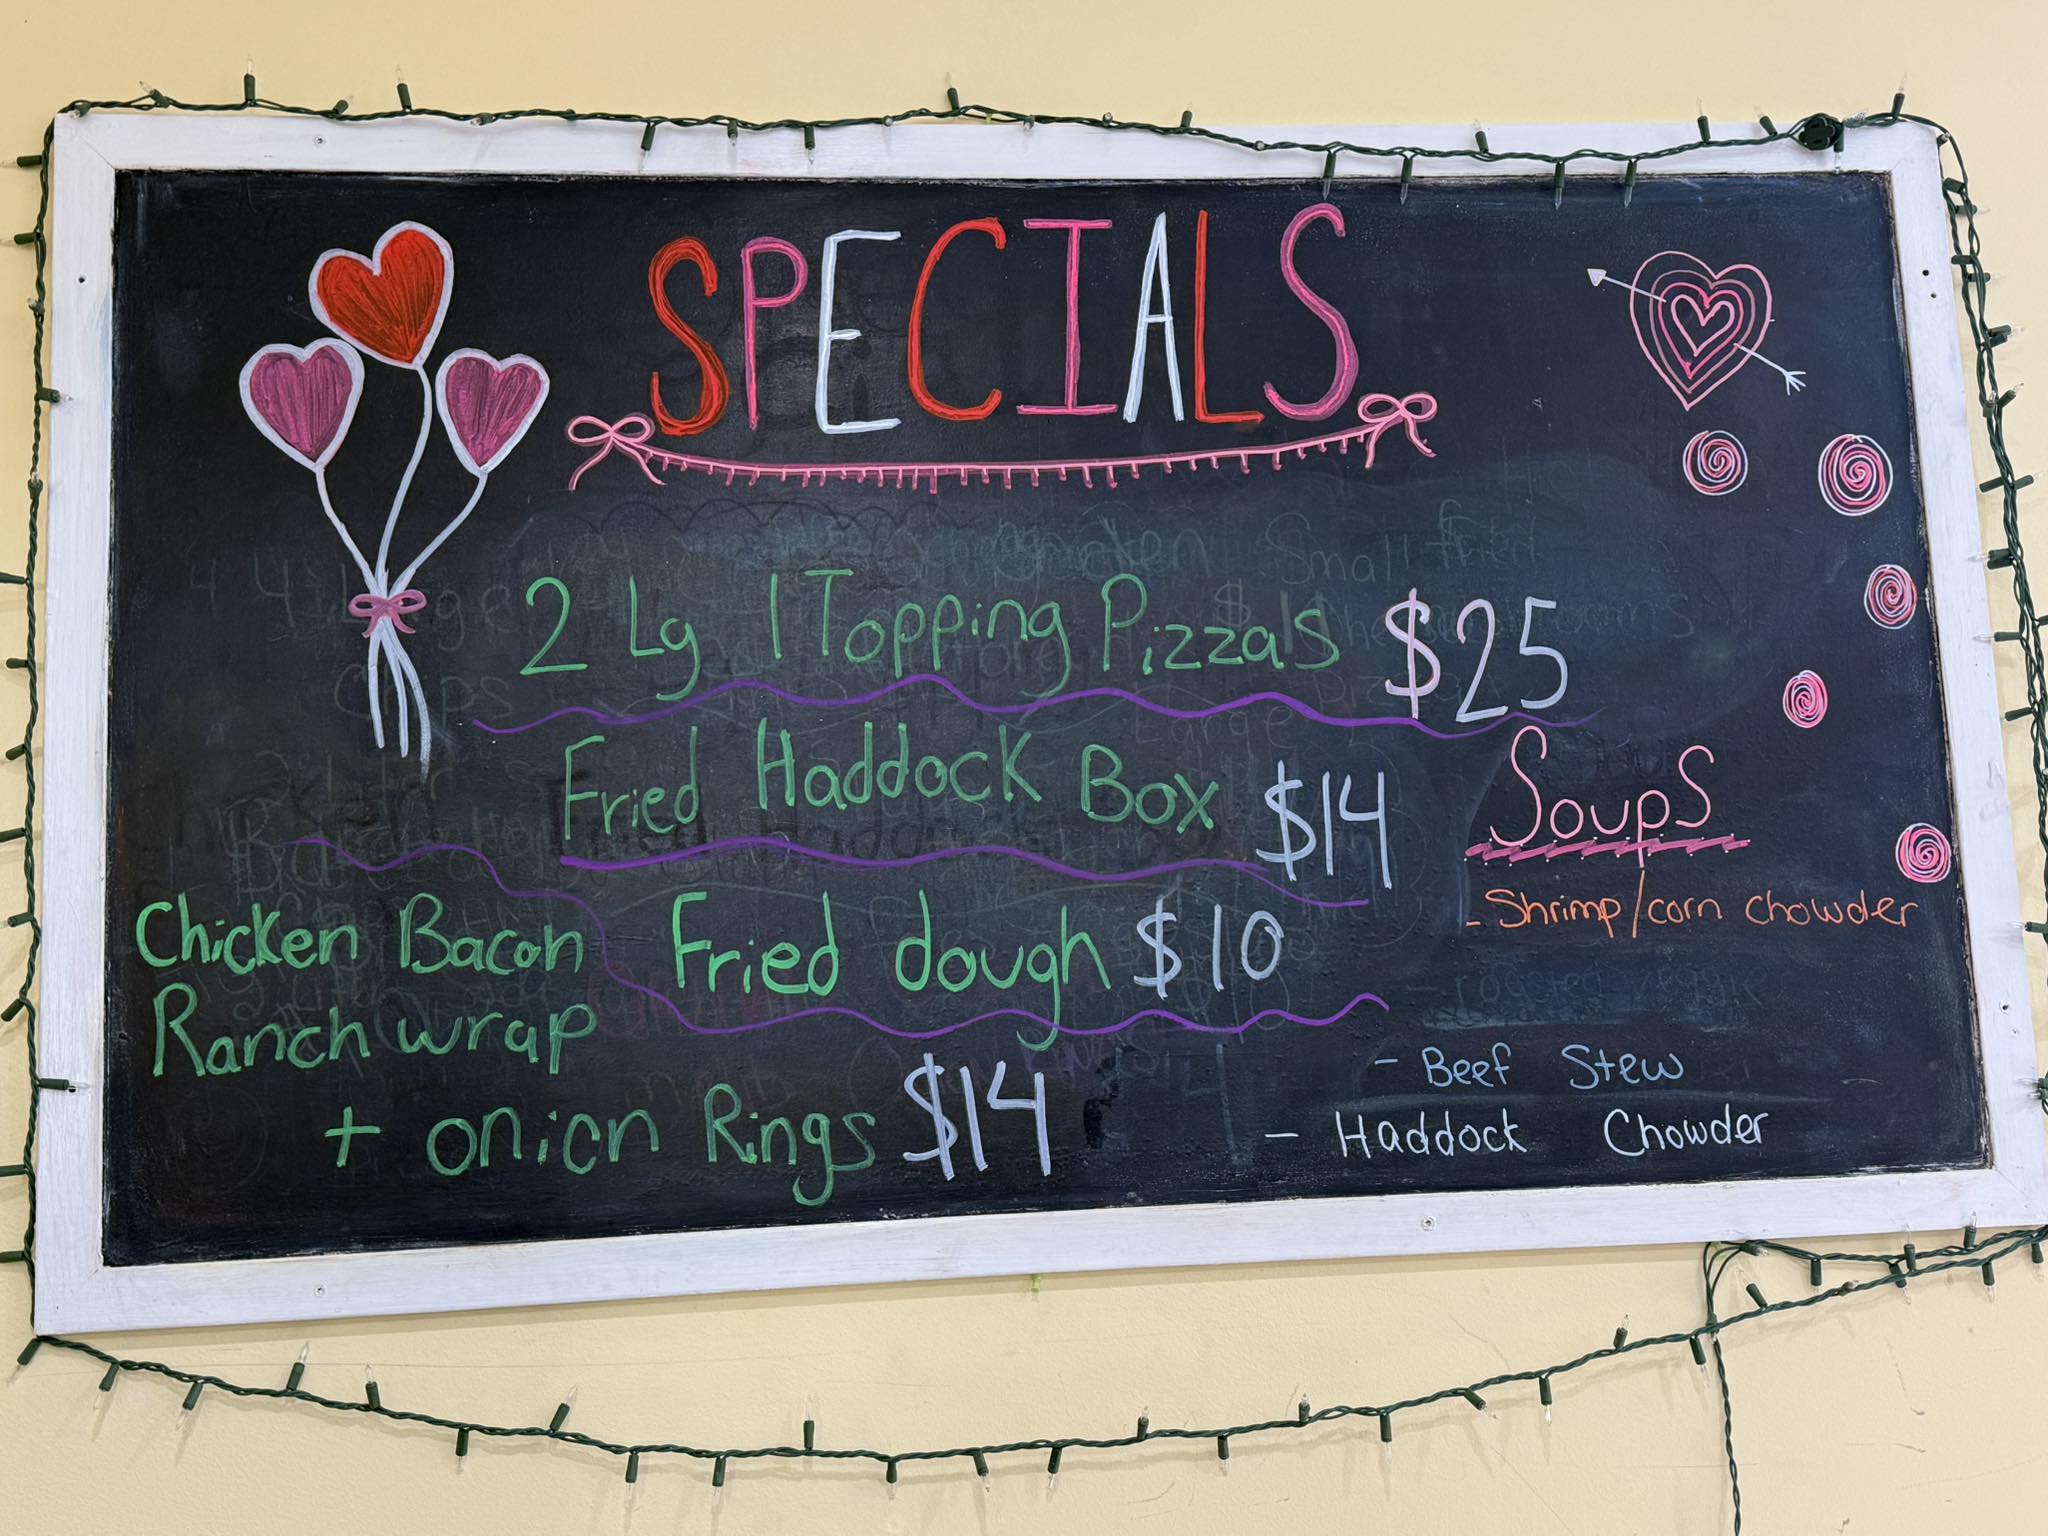 SPECIALS
2 Lg 1 Topping Pizzas $25
Fried Haddock Box $14
Fried dough $10
Chicken Bacon
Ranch wrap
+ onion Rings $14
Soups
- Shrimp/corn chowder
- Beef Stew
- Haddock Chowder